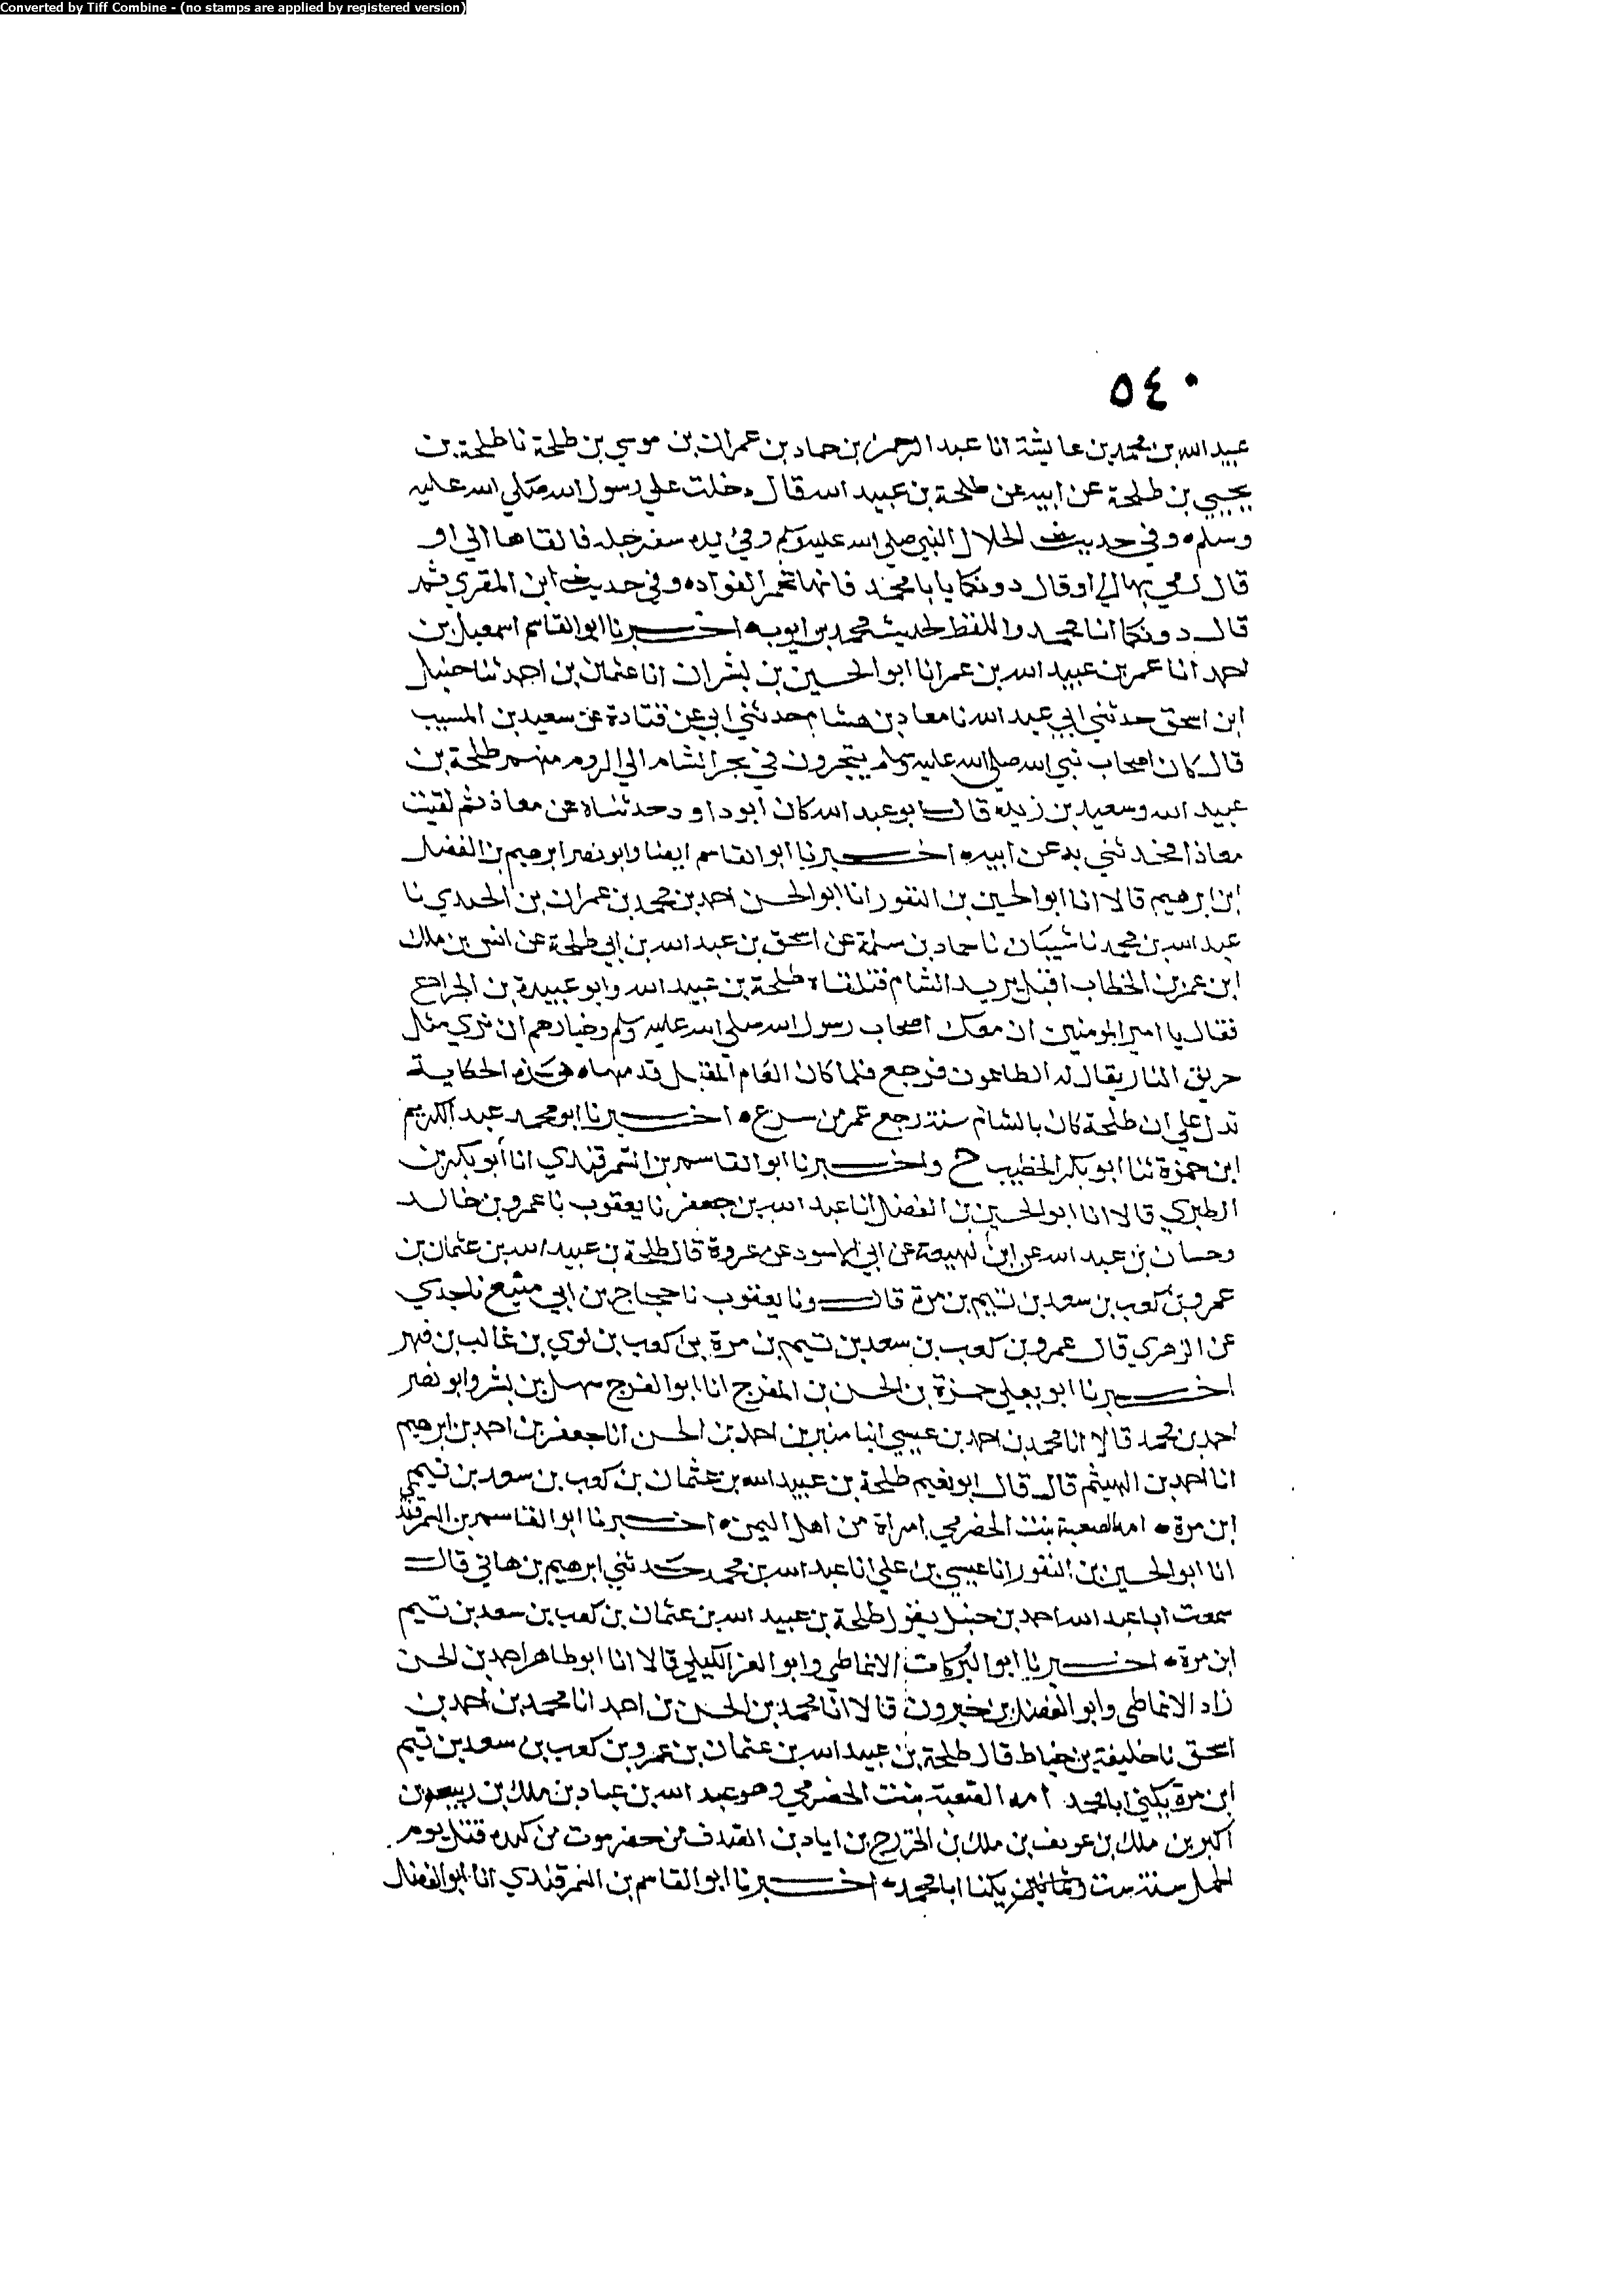 Converted by Tiff Combine - (no stamps are applied by registered version)
٥٤٠
عبيد الله بن محمد بن عايشة انا عبد الرحمن بن حماد بن عمران بن موسي بن طلحة نا طلحة بن
يحيي بن طلحة عن ابيه عن طلحة بن عبيد الله قال دخلت علي رسول الله صلي الله عليه
وسلم وفي حديث الخلال النبي صلي الله عليه وسلم وفي يده سفرجله فالقاها الي او
قال رمي بها الي او قال دونكها يابا محمد فانها تجم الفواده وفي حديث ابن المقري ثم
قال دونكها ابا محمد واللفظ لحديث محمد بن ايوب اخبرنا ابو القاسم اسمعيل بن
احمد انا عمر بن عبيد الله بن عمر انا ابو الحسين بن بشران انا عثمان بن احمد ثنا حنبل
ابن اسحق حدثني ابي عبد الله نا معاذ بن هشام حدثني ابي عن قتادة عن سعيد بن المسيب
قال كان اصحاب نبي الله صلي الله عليه وسلم يتجرون في بحر الشام الي الروم منهم طلحة بن
عبيد الله وسعيد بن زيد قال ابو عبد الله كان ابو داود حدثناه عن معاذ ثم لقيت
معاذا فحدثني به عن ابيه اخبرنا ابو القاسم ايضا وابو نصر ابرهيم بن الفضل
ابن ابرهيم قالا انا ابو الحسين بن النقور انا ابو الحسن احمد بن محمد بن عمران بن الجندي نا
عبد الله بن محمد نا شيبان نا حماد بن سلمة عن اسحق بن عبد الله بن ابي طلحة عن انس بن ملك
ابن عمر بن الخطاب اقبل يريد الشام فتلقاه طلحة بن عبيد الله وابو عبيدة بن الجراح
فقال يا امير المومنين ان معك اصحاب رسول الله صلي الله عليه وسلم وخيارهم ان نري مثل
حريق النار يقال له الطاعون فرجع فلما كان العام المقبل قدمها هذه الحكاية
تدل علي ان طلحة كان بالشام سنة رجع عمر من سرع اخبرنا ابو محمد عبد الكريم
ابن حمزة ثنا ابو بكر الخطيب ح واخبرنا ابو القاسم بن السمرقندي انا أبو بكر بن
الطبري قالا انا ابو الحسين بن الفضل انا عبد الله بن جعفر نا يعقوب نا عمرو بن خالد
وحسان بن عبد الله عن ابن لهيعة عن ابي الاسود عن عروة قال طلحة بن عبيد الله بن عثمان بن
عمرو بن كعب بن سعد بن تيم بن مرة قال ونا يعقوب نا حجاج بن ابي منيع نا جدي
عن الزهري قال عمرو بن كعب بن سعد بن تيم بن مرة بن كعب بن لوي بن غالب بن فهر
اخبرنا ابو يعلي حمزة بن الحسن بن المفرج انا ابو الفرج سهل بن بشر وابو نصر
احمد بن محمد قالا انا محمد بن احمد بن عيسي انا منير بن احمد بن الحسن انا جعفر بن احمد بن ابرهيم
انا احمد بن الهيثم قال قال ابو نعيم طلحة بن عبيد الله بن عثمان بن كعب بن سعد بن تيم
ابن مرة امه الصعبة بنت الحضرمي امراة من اهل اليمن اخبرنا ابو القاسم بن السمرقند
انا ابو الحسين بن النقور انا عيسي بن علي انا عبد الله بن محمد حدثني ابرهيم بن هاني قال
سمعت ابا عبد الله احمد بن حنبل يقول طلحة بن عبيد الله بن عثمان بن كعب بن سعد بن تيم
ابن مرة اخبرنا ابو البركات الانماطي وابو العز الكيلي قالا انا ابو طاهر احمد بن الحسن
زاد الانماطي وابو الفضل بن خيرون قالا انا محمد بن الحسن بن احمد انا محمد بن احمد بن
اسحق نا خليفة بن خياط قال طلحة بن عبيد الله بن عثمان بن عمرو بن كعب بن سعد بن تيم
ابن مرة يكني ابا محمد امه الصعبة بنت الحضرمي وهو عبد الله بن عباد بن ملك بن ربيعة بن
اكبر بن ملك بن عويف بن ملك بن الخزرج بن اياد بن الصدف من حضرموت من كنده قتل يوم
الجمل سنة ست وثلاثين يكنا ابا محمد اخبرنا ابو القاسم بن السمرقندي انا ابو الفضل